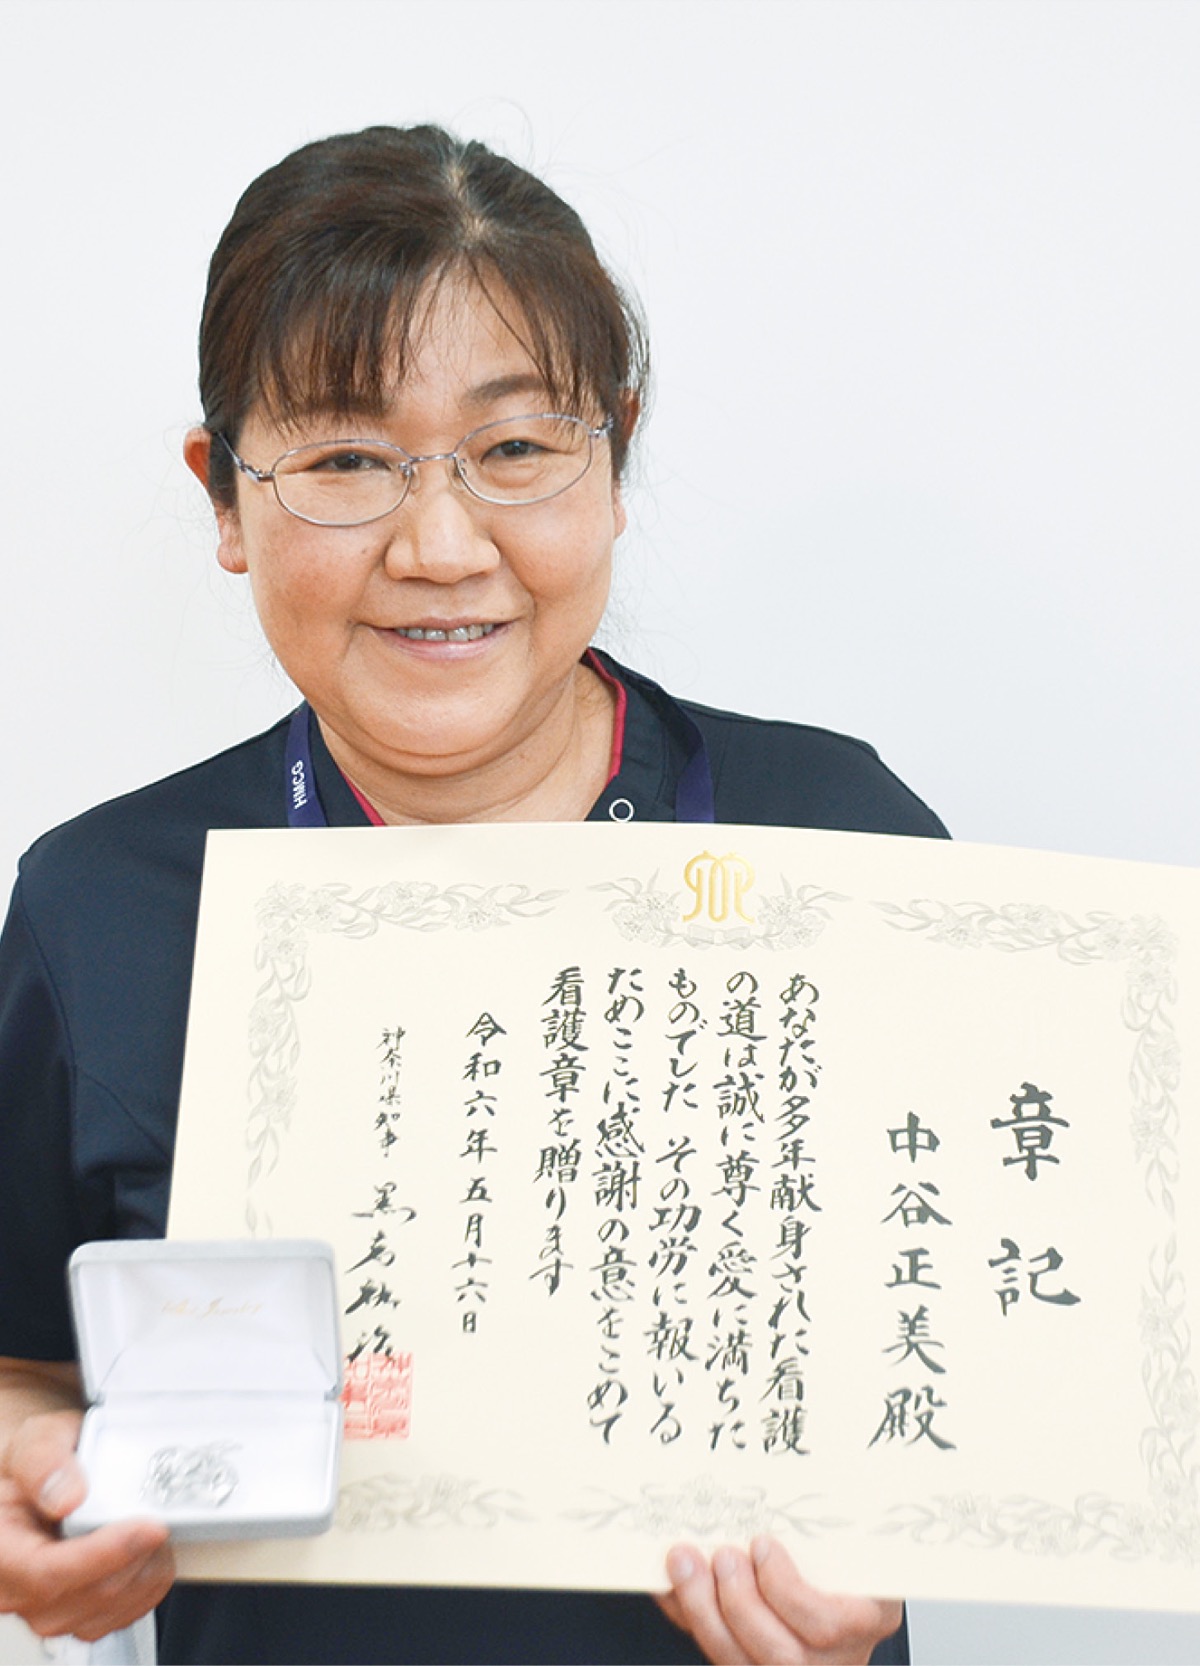 HMCG
章記
中谷正美殿
あなたが多年献身された看護
の道は誠に尊く愛に満ちた
ものでした その功労に報いる
ためここに感謝の意をこめて
看護章を贈ります
令和六年五月十六日
神奈川県知事 黒岩祐治